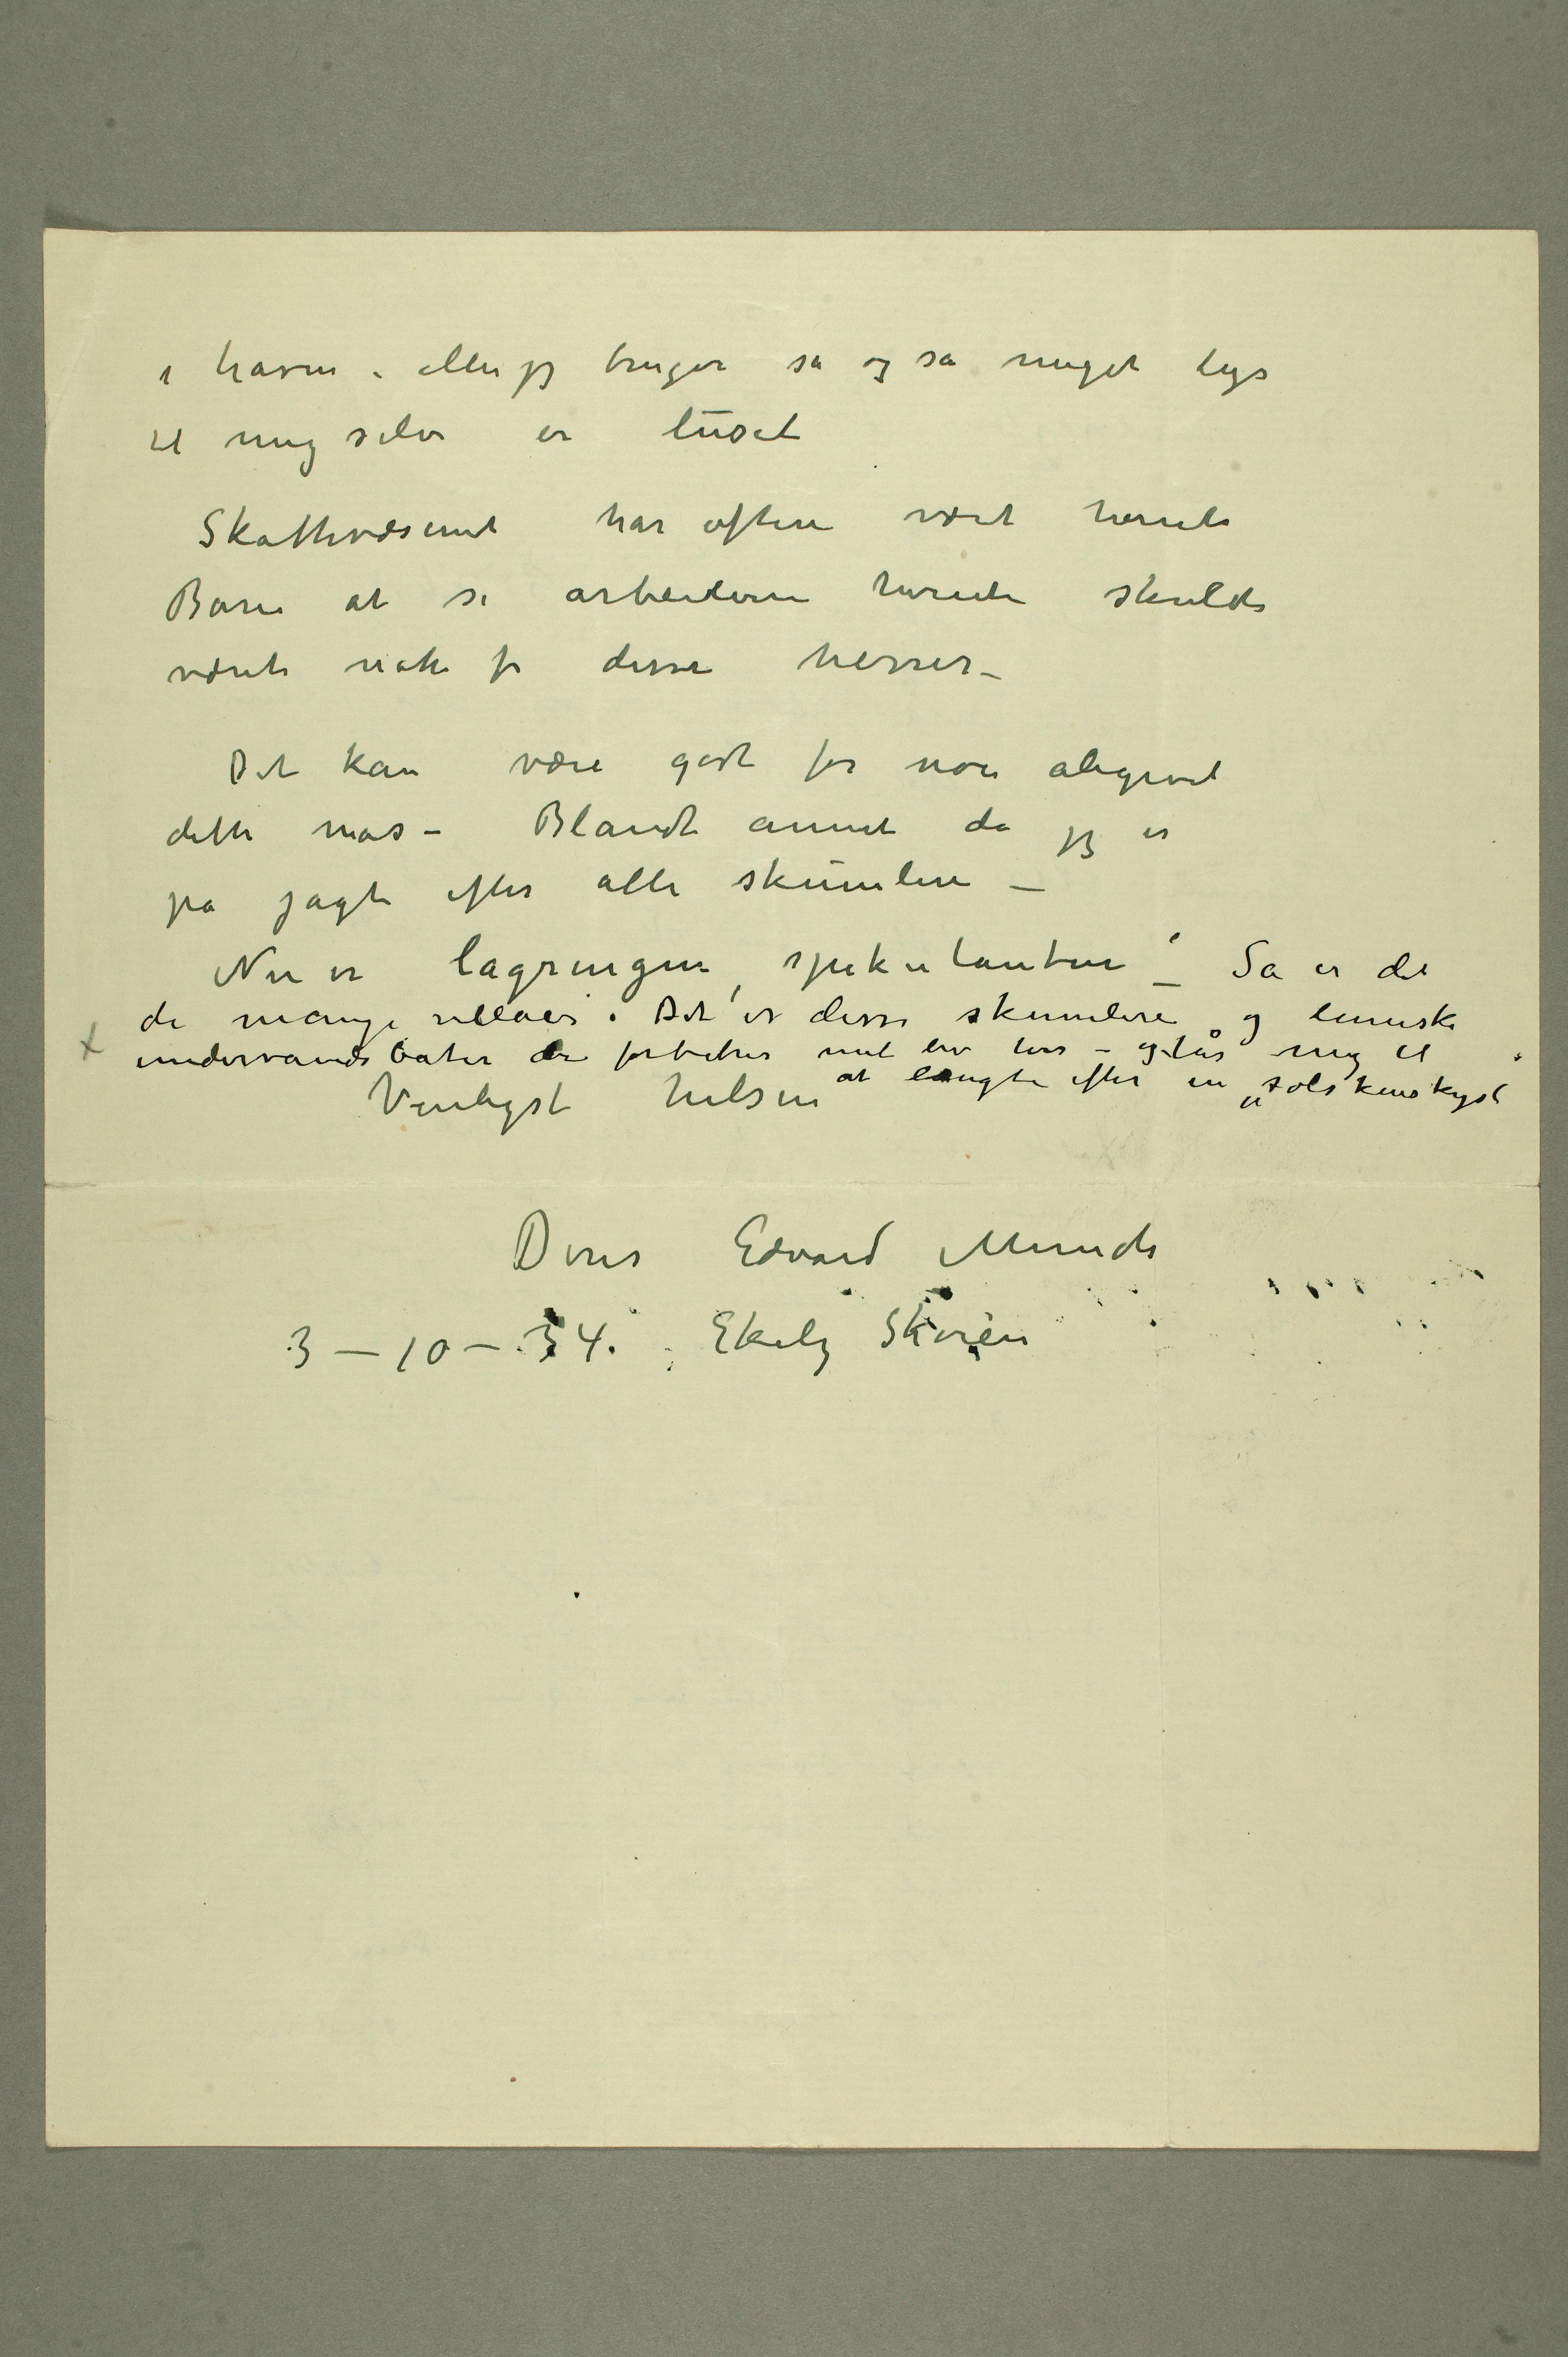 i haven. eller jeg bruger så og så meget lys
til mig selv er luset
Skattevæsenet har oftere været herute
Bare at se arbeiderne herute skulde
været nok for disse herrer –
Det kan være godt for noe aligevel
dette mas – Blandt annet da jeg er
på jagt efter alle skumlere –
Nu er lagringen, spekulanten! – Så er det
de mange villaer. Det er disse skumlere og lumske
undervandsbåter der forbitrer mit liv her – og får mig til
at længte efter en „solskinskyst
Venligst hilsen
Deres Edvard Munch
3 – 10 – 34. Ekely Skøien